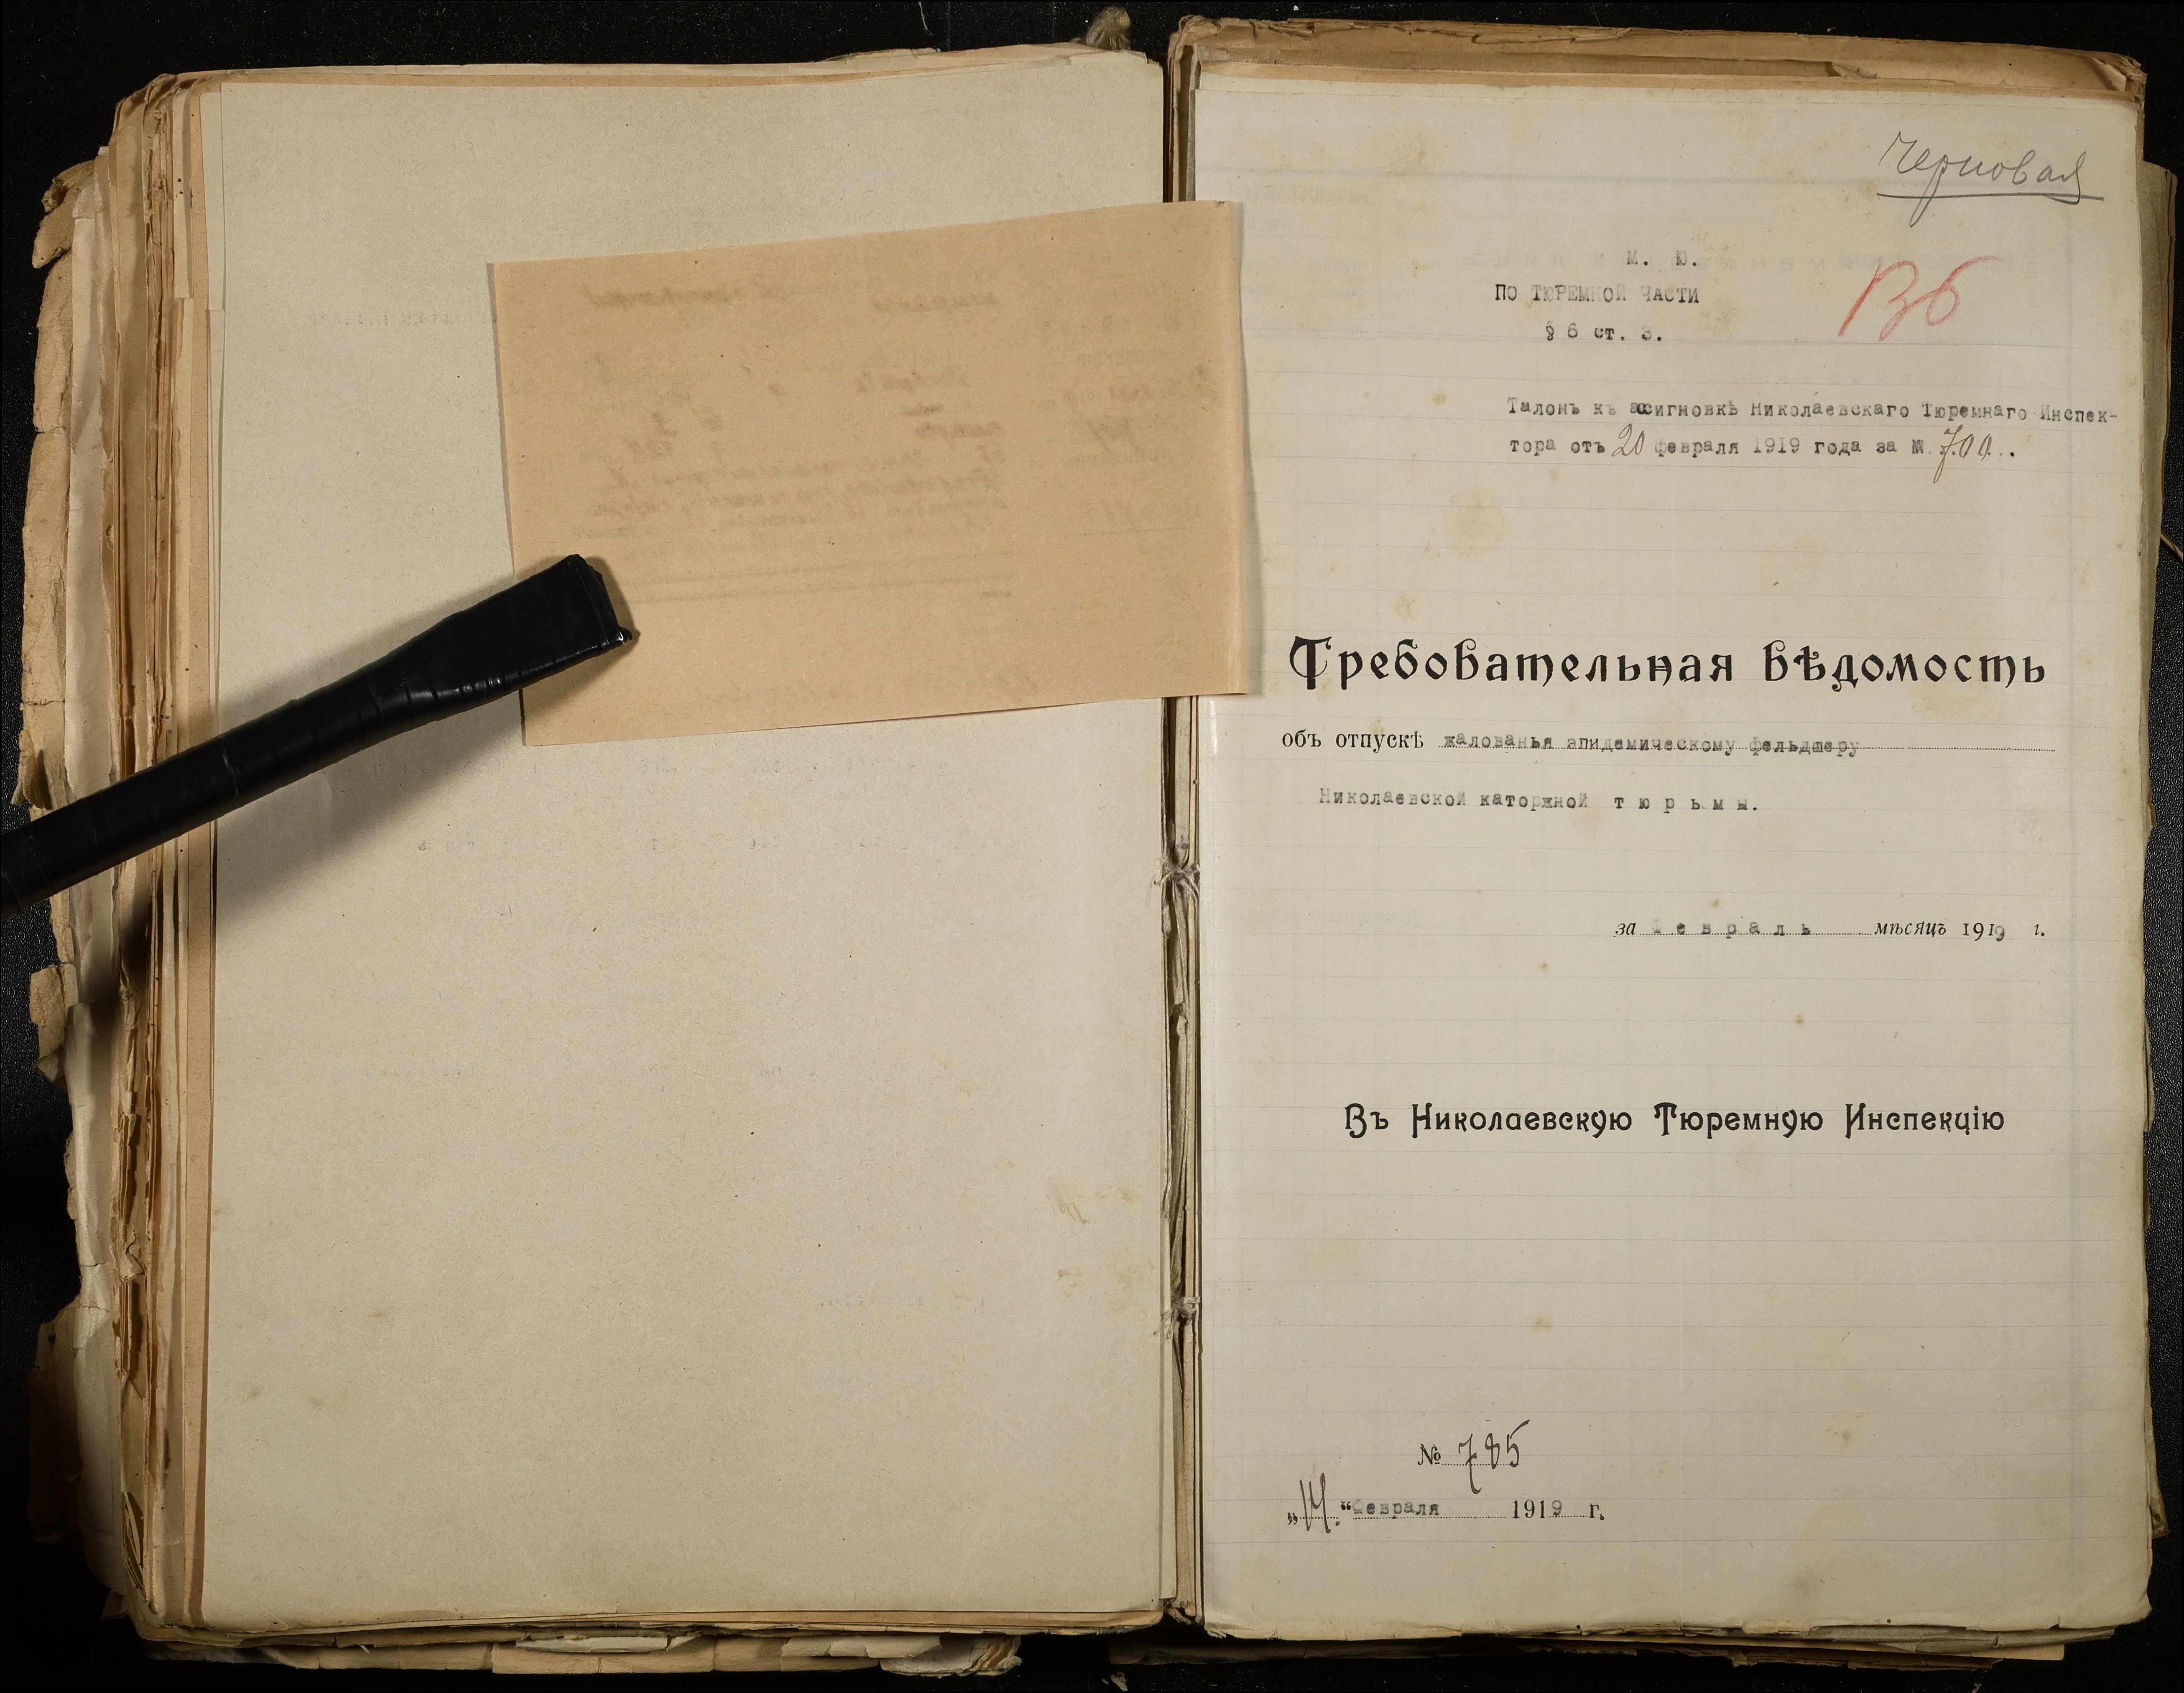 Черновая
М. Ю.
ПО ТЮРЕМНОЙ ЧАСТИ
§ 6 ст. 3.
Талонъ къ ассигновкѣ Николаевскаго Тюремнаго Инспек-
тора отъ 20 февраля 1919 года за № 700.
Требовательная вѣдомость
объ отпускѣ жалованья эпидемическому фельдшеру
Николаевской каторжной тюрьмы.
за Февраль мѣсяцъ 1919 г.
Въ Николаевскую Тюремную Инспекцію
№ 785
„14.“ Февраля 1919 г.